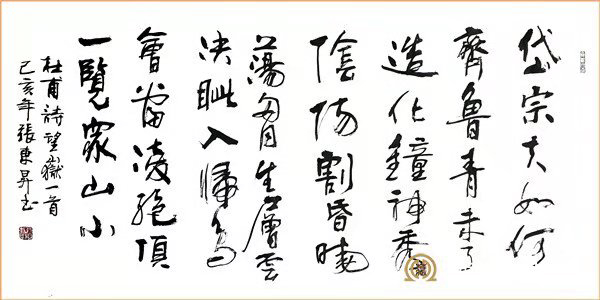 岱宗夫如何
齊魯青未了
造化鐘神秀
陰陽割昏曉
蕩胸生層雲
決眦入歸鳥
會當凌絕頂
一覽眾山小
杜甫詩望嶽一首
己亥年張東昇书